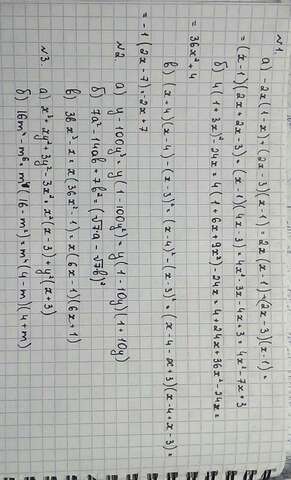 №1.
а) -2x(1-x)+(2x-3)(x-1)=2x(x-1)+(2x-3)(x-1)=
=(x-1)(2x+2x-3)=(x-1)(4x-3)=4x²-3x-4x+3=4x²-7x+3
б) 4(1+3x)²-24x=4(1+6x+9x²)-24x=4+24x+36x²-24x=
=36x²+4
в) (x+4)(x-4)-(x-3)²=(x-4)²-(x-3)²=(x-4-x+3)(x-4+x-3)=
=-1(2x-7)=2x+7
№2
а) y-100y³=y(1-100y²)=y(1-10y)(1+10y)
б) 7a²-14ab+7b²=(√7a-√7b)²
в) 36x³-x=x(36x²-1)=x(6x-1)(6x+1)
№3
а) x³+xy²+3y²+3x²=x²(x+3)+y²(x+3)
б) 16m⁴-m⁶=m⁴(16-m²)=m⁴(4-m)(4+m)